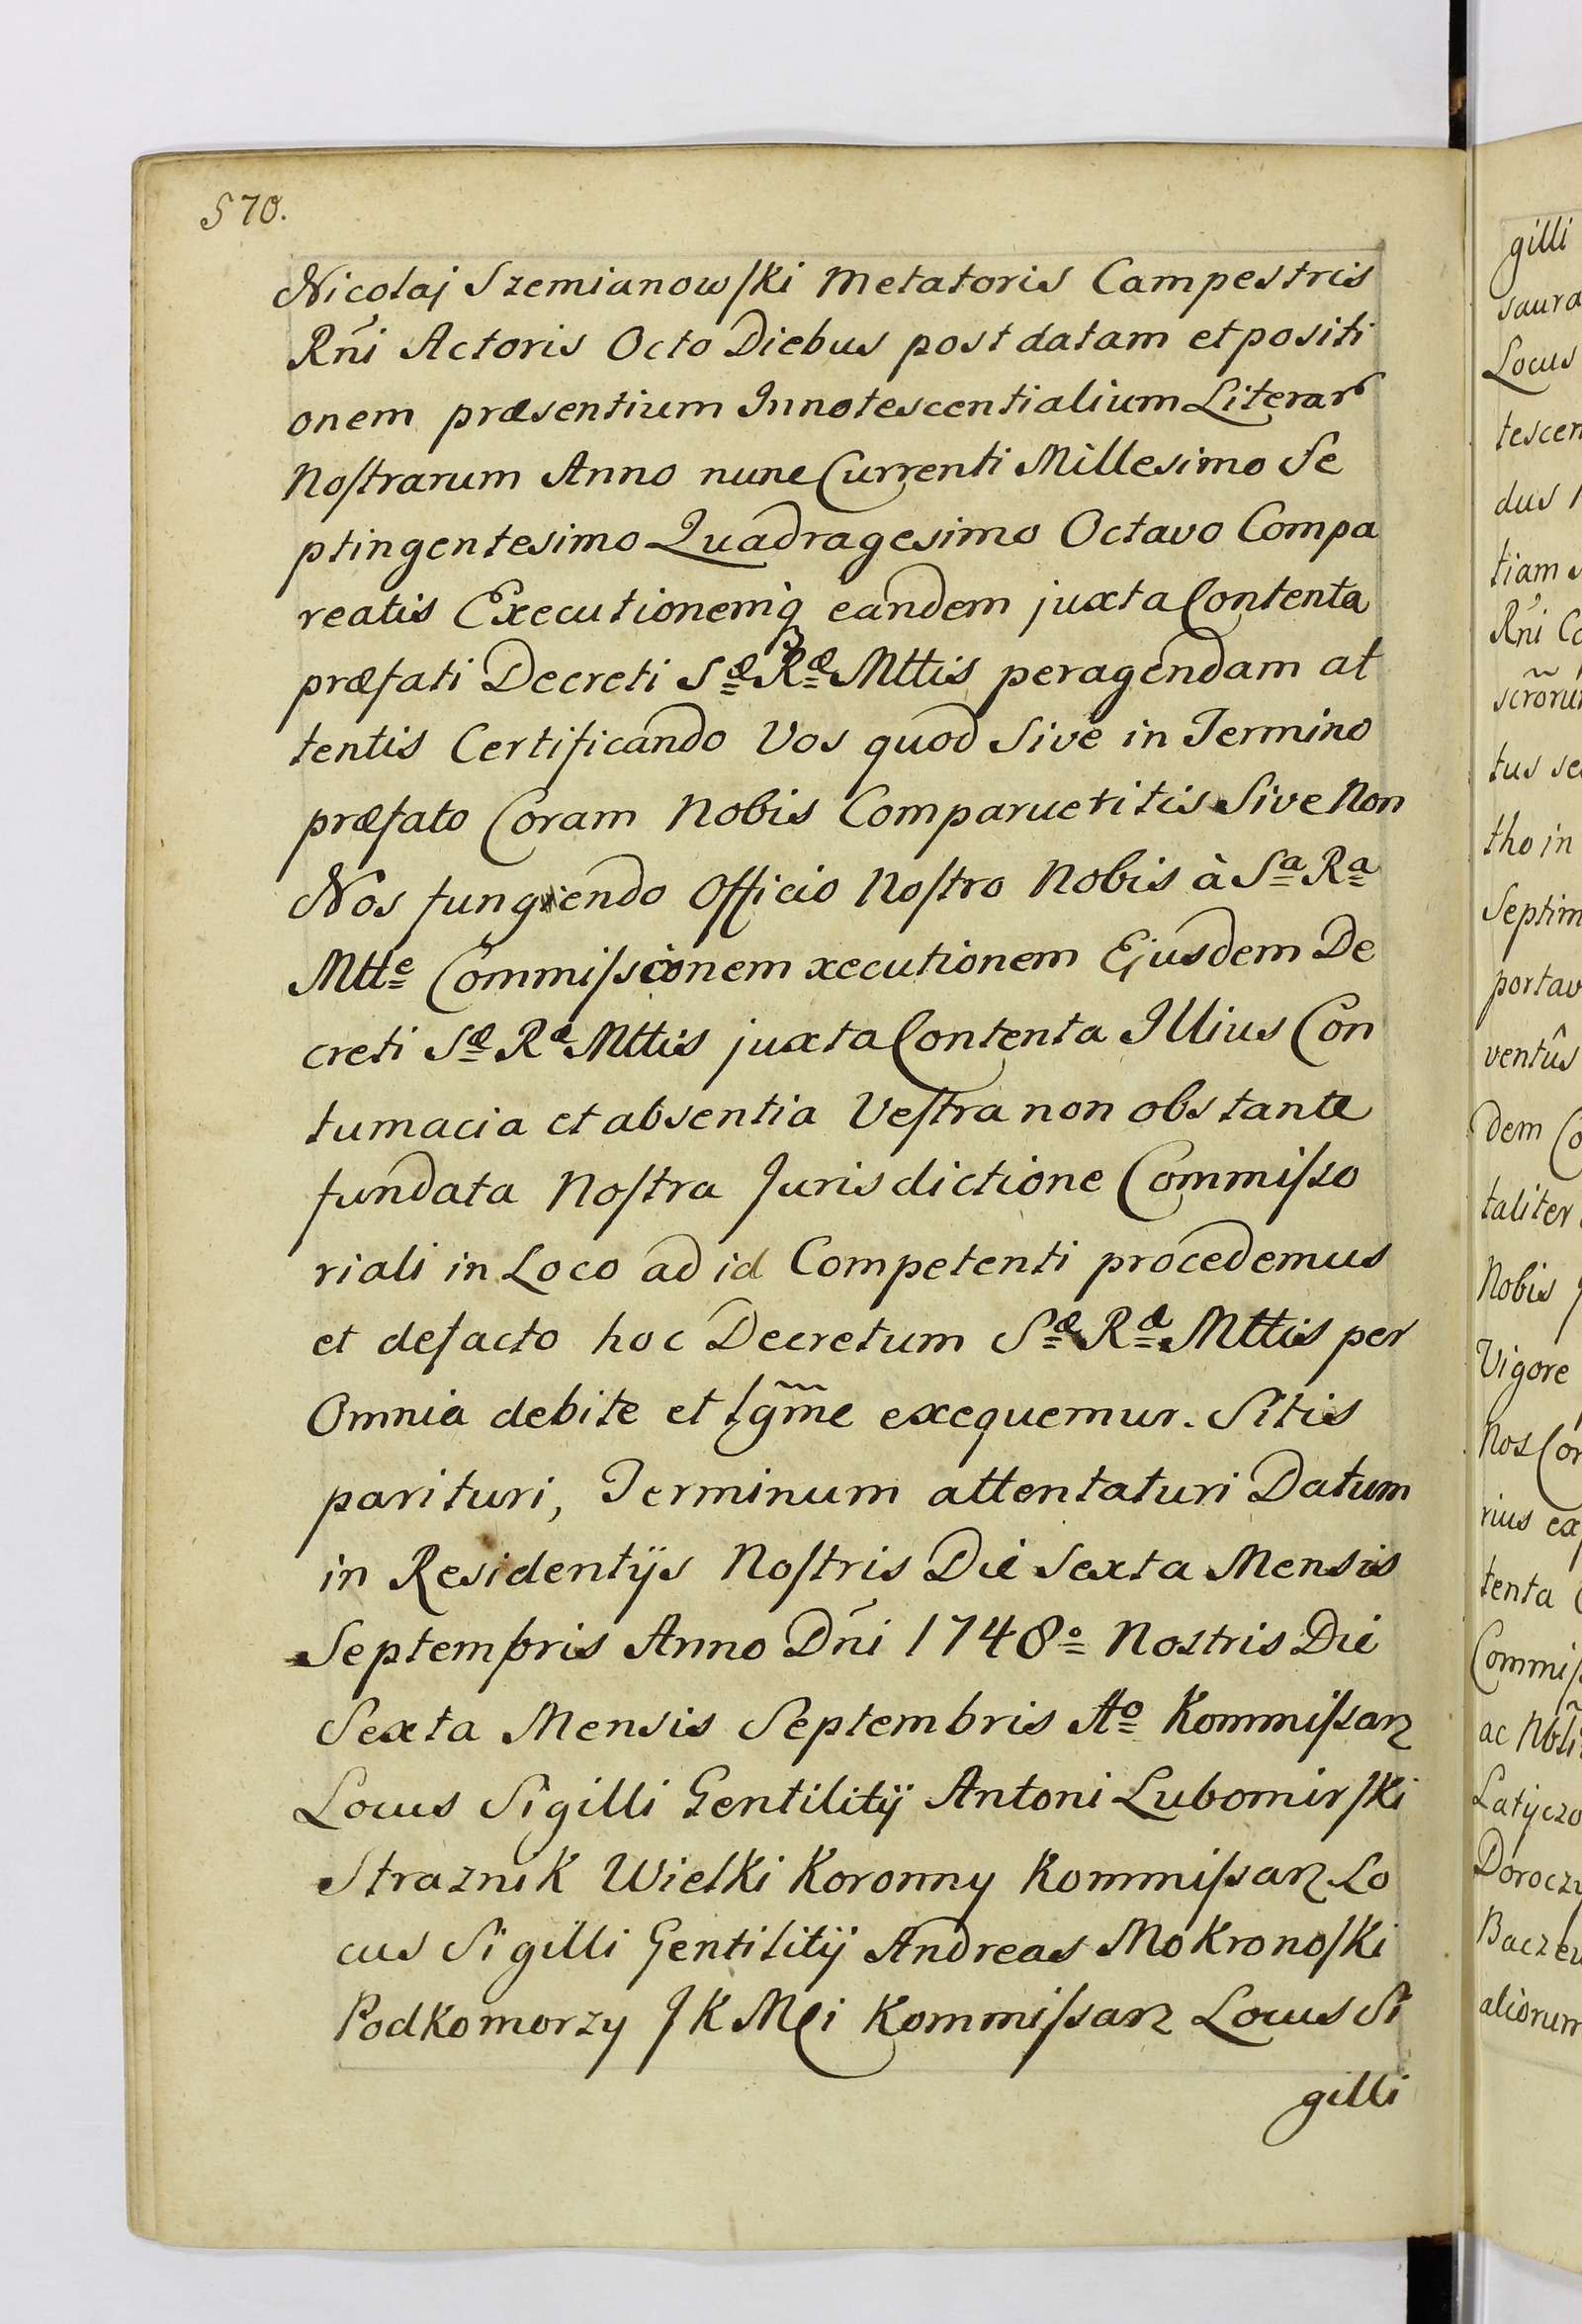 570.
Nicolaj Szemianowſki Metatoris Campestris
Rñi Actoris Octo Diebus post datam et positi
onem præsentium Innotescentialium Literar
Noſtrarum Anno nunc Currenti Millesimo Se
ptingentesimo Quadragesimo Octavo Compa
reatis Executionemq eandem juxta Contenta
præfati Decreti Sæ Ræ Mttis peragendam at
tentis Certificando Vos quod Sive in Termino
præfato Coram Nobis Comparueritis Sive Non
Nos fungiendo Officio Noſtro Nobis à Sa Ra
Mtte Commiſsionem xecutionem Ejusdem De
creti Sæ Ræ Mttis juxta Contenta Illius Con
tumacia et absentia Veſtra non obstante
fundata Noſtra Jurisdictione Commiſso
riali in Loco ad id Competenti procedemus
et defacto hoc Decretum Sæ Ræ Mttis per
Omnia debite et lgm̃e exequemur. Sitis
parituri, Terminum attentaturi Datum
in Residentijs Noſtris Die Sexta Mensis
Septembris Anno Dńi 1748o Nostris Die
Sexta Mensis Septembris Ao Kommiſsarz
Locus Sigilli Gentilitij Antoni Lubomirſki
Straznik Wielki Koronny Kommiſsarz Lo
cus Sigilli Gentilitij Andreas Mokronoſki
Podkomorzy JK Mci Kommiſsarz Locus Si
gilli
gilli
saura
Locus
tescen
dus
tiam
Rñi Co
scrõru
tus se
tho in
Septim
portav
ventûs
dem Co
taliter
Nobis
Vigore
Nos Con
rius ex
tenta
Commiſs
ac Nbli
Latyczo
Doroczy
Baczew
aliorum